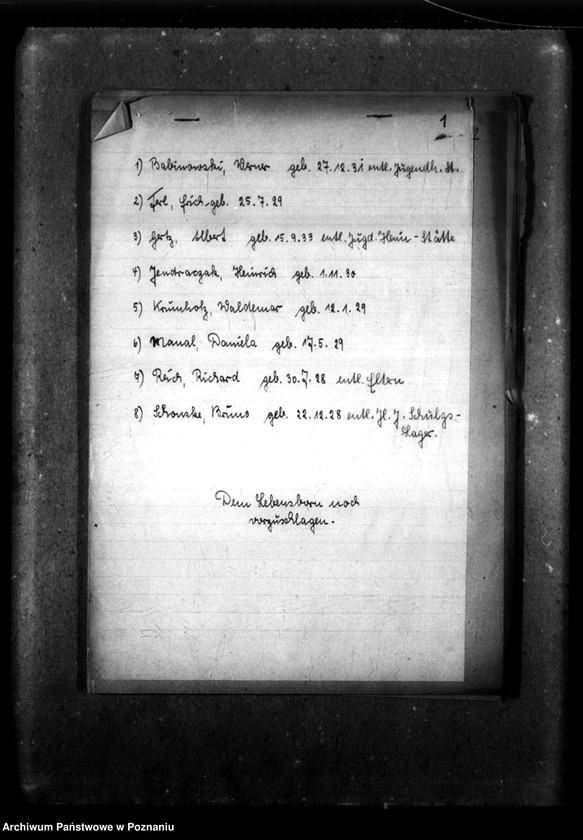 1
2
1) Babinowski, Werner geb. 27.12.31 entl. Jugendh. St.
2) Ferl, Erich geb. 25.7.29
3) Gertz, Albert geb. 15.9.33 entl. Jugd. Heim-Stätte
4) Jendraczak, Heinrich geb. 1.11.30
5) Krumholz, Waldemar geb. 12.1.29
6) Manal, Daniela geb. 17.5.29
7) Reich, Richard geb. 30.7.28 entl. Eltern
8) Schonske, Bruno geb. 22.12.28 entl. J. Schulgs-
Lager.
Dem Lebensborn noch
vorzuschlagen.
Archiwum Państwowe w Poznaniu